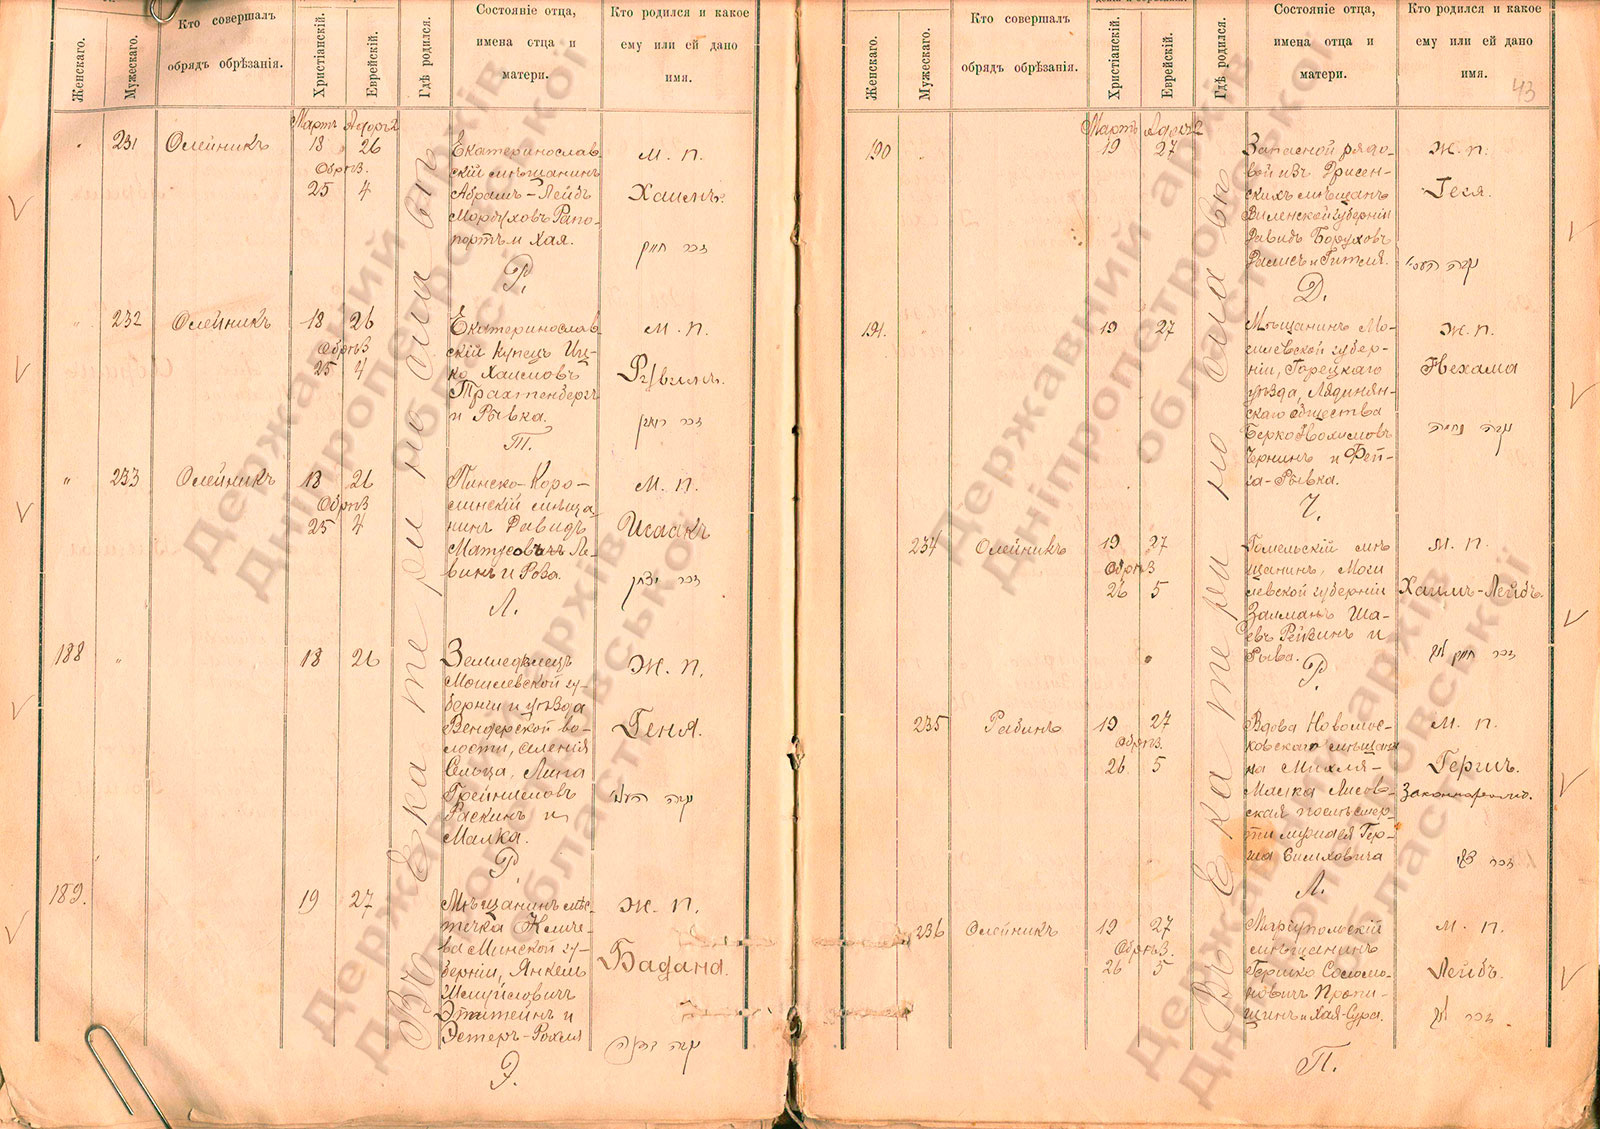 Женскаго.
Мужескаго.
Кто совершалъ
обрядъ обрѣзанія.
Христіанскій.
Еврейскій.
Гдѣ родился.
Состояніе отца,
имена отца и
матери.
Кто родился и какое
ему или ей дано
имя.
Мартъ Адаръ 2
" 231 Олейникъ 18 26
Обрѣз.
25 4
Екатеринослав
скій мѣщанинъ
Абрамъ-Лейбъ
Мордуховъ Рапо-
портъ и Хая.
Р.
М. п.
Хаимъ.
זכר חיים
" 232 Олейникъ 18 26
Обрѣз
25 4
Екатеринослав
скій купецъ Иц-
ко Хаимовъ
Трахтенбергъ
и Рывка.
Т.
М. п.
Рувинъ.
זכר ראובן
" 233 Олейникъ 18 26
Обрѣз
25 4
Пинско-Каро-
линскій мѣща-
нинъ Давидъ
Матусовъ Ле-
винъ и Роза.
Л.
М. п.
Исаакъ
זכר יצחק
188 " 18 26
Земледѣлецъ
Могилевской гу-
берніи и уѣзда
Вендерской во-
лости, селенія
Сельца,
Раскинъ и
Малка.
Р.
Ж. п.
Геня.
נקבה
189. 19 27
Мѣщанинъ мѣс-
течка
Минской гу-
берніи, Янкель
Шмуйловичъ
Эпштейнъ и
Эстеръ-Рохля
Э.
Ж. п.
Бадана.
נקבה
Въ Екатеринославѣ
Женскаго.
Мужескаго.
Кто совершалъ
обрядъ обрѣзанія.
Христіанскій.
Еврейскій.
Гдѣ родился.
Состояніе отца,
имена отца и
матери.
Кто родился и какое
ему или ей дано
имя.
43
Мартъ Адаръ 2
190 " 19 27
Запасной рядо-
вой изъ Дрисен-
скихъ мѣщанъ
Виленской губерніи
Давидъ Боруховъ
и Гитля.
Д.
Ж. п.
Геся.
נקבה
191. " 19 27
Мѣщанинъ Мо-
гилевской губер-
ніи, Горецкаго
уѣзда, Лядинян-
скаго общества
Берко Нохимовъ
Чернинъ и Фей-
га-Рывка.
Ч.
Ж. п.
Нехама
נקבה נחמה
234 Олейникъ 19 27
Обрѣз
26 5
Гомельскій мѣ
щанинъ, Моги
левской губерніи
Залманъ Ша-
евъ Рейзинъ и
Рыва.
Р.
М. п.
Хаимъ-Лейбъ.
זכר חיים לייב
235 Рабинъ 19 27
Обрѣз.
26 5
Вдова Новомос-
ковскаго мѣщани
на Михля-
Малка Лисов-
ская послѣ смер-
ти мужа ея Гер-
ша Симховича
Л.
М. п.
Гершъ.
זכר צבי
236 Олейникъ 19 27
Обрѣз.
26 5
Маріупольскій
мѣщанинъ
Гершко Соломо-
новичъ Пропи-
щинъ и Хая-Сура.
П.
М. п.
Лейбъ.
זכר לייב
Въ Екатеринославѣ
Державний архів
Дніпропетровської
області